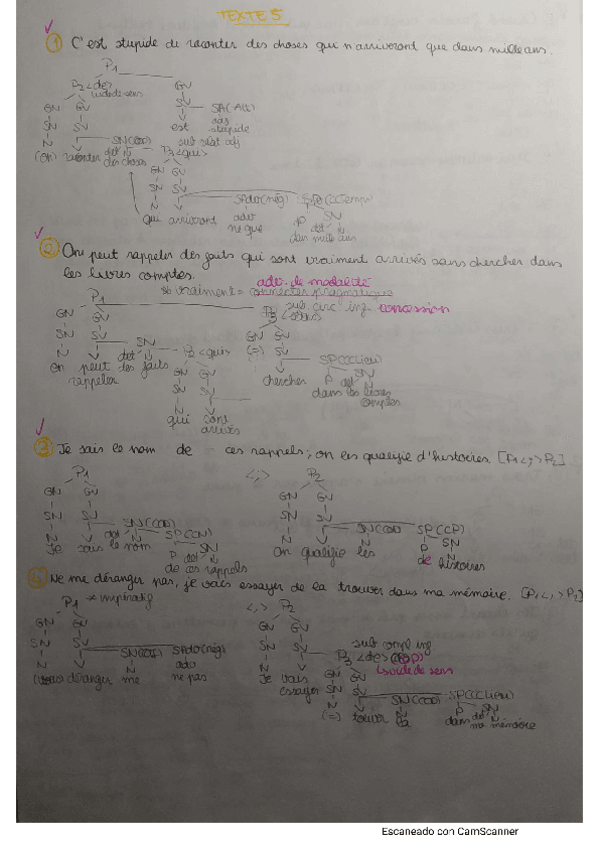 TEXTE 5
1 C'est stupide de raconter des choses qui n'arriveront que dans mille ans.
P1
P2 <de> GV
vide de sens
GN GV SV SA(Att)
SN SV est adj
stupide
N V SN(COD) sub relat adj
(on) raconter det N P3 <qui>
des choses GN GV
SN SV
N V SAdv(nég) SP(CCTemps)
qui arriveront adv P SN
ne que det N
dans mille ans
2 On peut rappeler des faits qui sont vraiment arrivés sans chercher dans
les livres comptes.
adv. de modalité
* vraiment = connecter pragmatique
P1 sub. circ. inf. concession
GN GV P3 <sans>
SN SV GN GV
N V SN (=) SV
det N P2 <qui> V SP(CCLieu)
On peut des faits GN GV chercher P SN
rappeler SN SV det N
N V dans les livres
comptes
qui sont
arrivés
3 Je sais le nom de ces rappels; on les qualifie d'histoires. [P1 <;> P2]
P1 <;> P2
GN GV GN GV
SN SV SN SV
N V SN(COD) N V SN(COD) SP(CCP)
Je sais det N SP(CN) N P SN
le nom P SN On qualifie les N
det N de histoires
de ces rappels
4 Ne me déranger pas, je vais essayer de la trouver dans ma mémoire. [P1 <,> P2]
P1 * impératif <,> P2
GN GV GN GV sub compl inf
SN SV SN SV P3 <de> (COD)
N V SN(COD) SAdv(nég) N V vide de sens
N adv Je vais GN GV
(vous) déranger me ne pas essayer SN SV
N V SN(COD) SP(CCLieu)
(=) trouver N P SN
la dans det N
ma mémoire
Escaneado con CamScanner